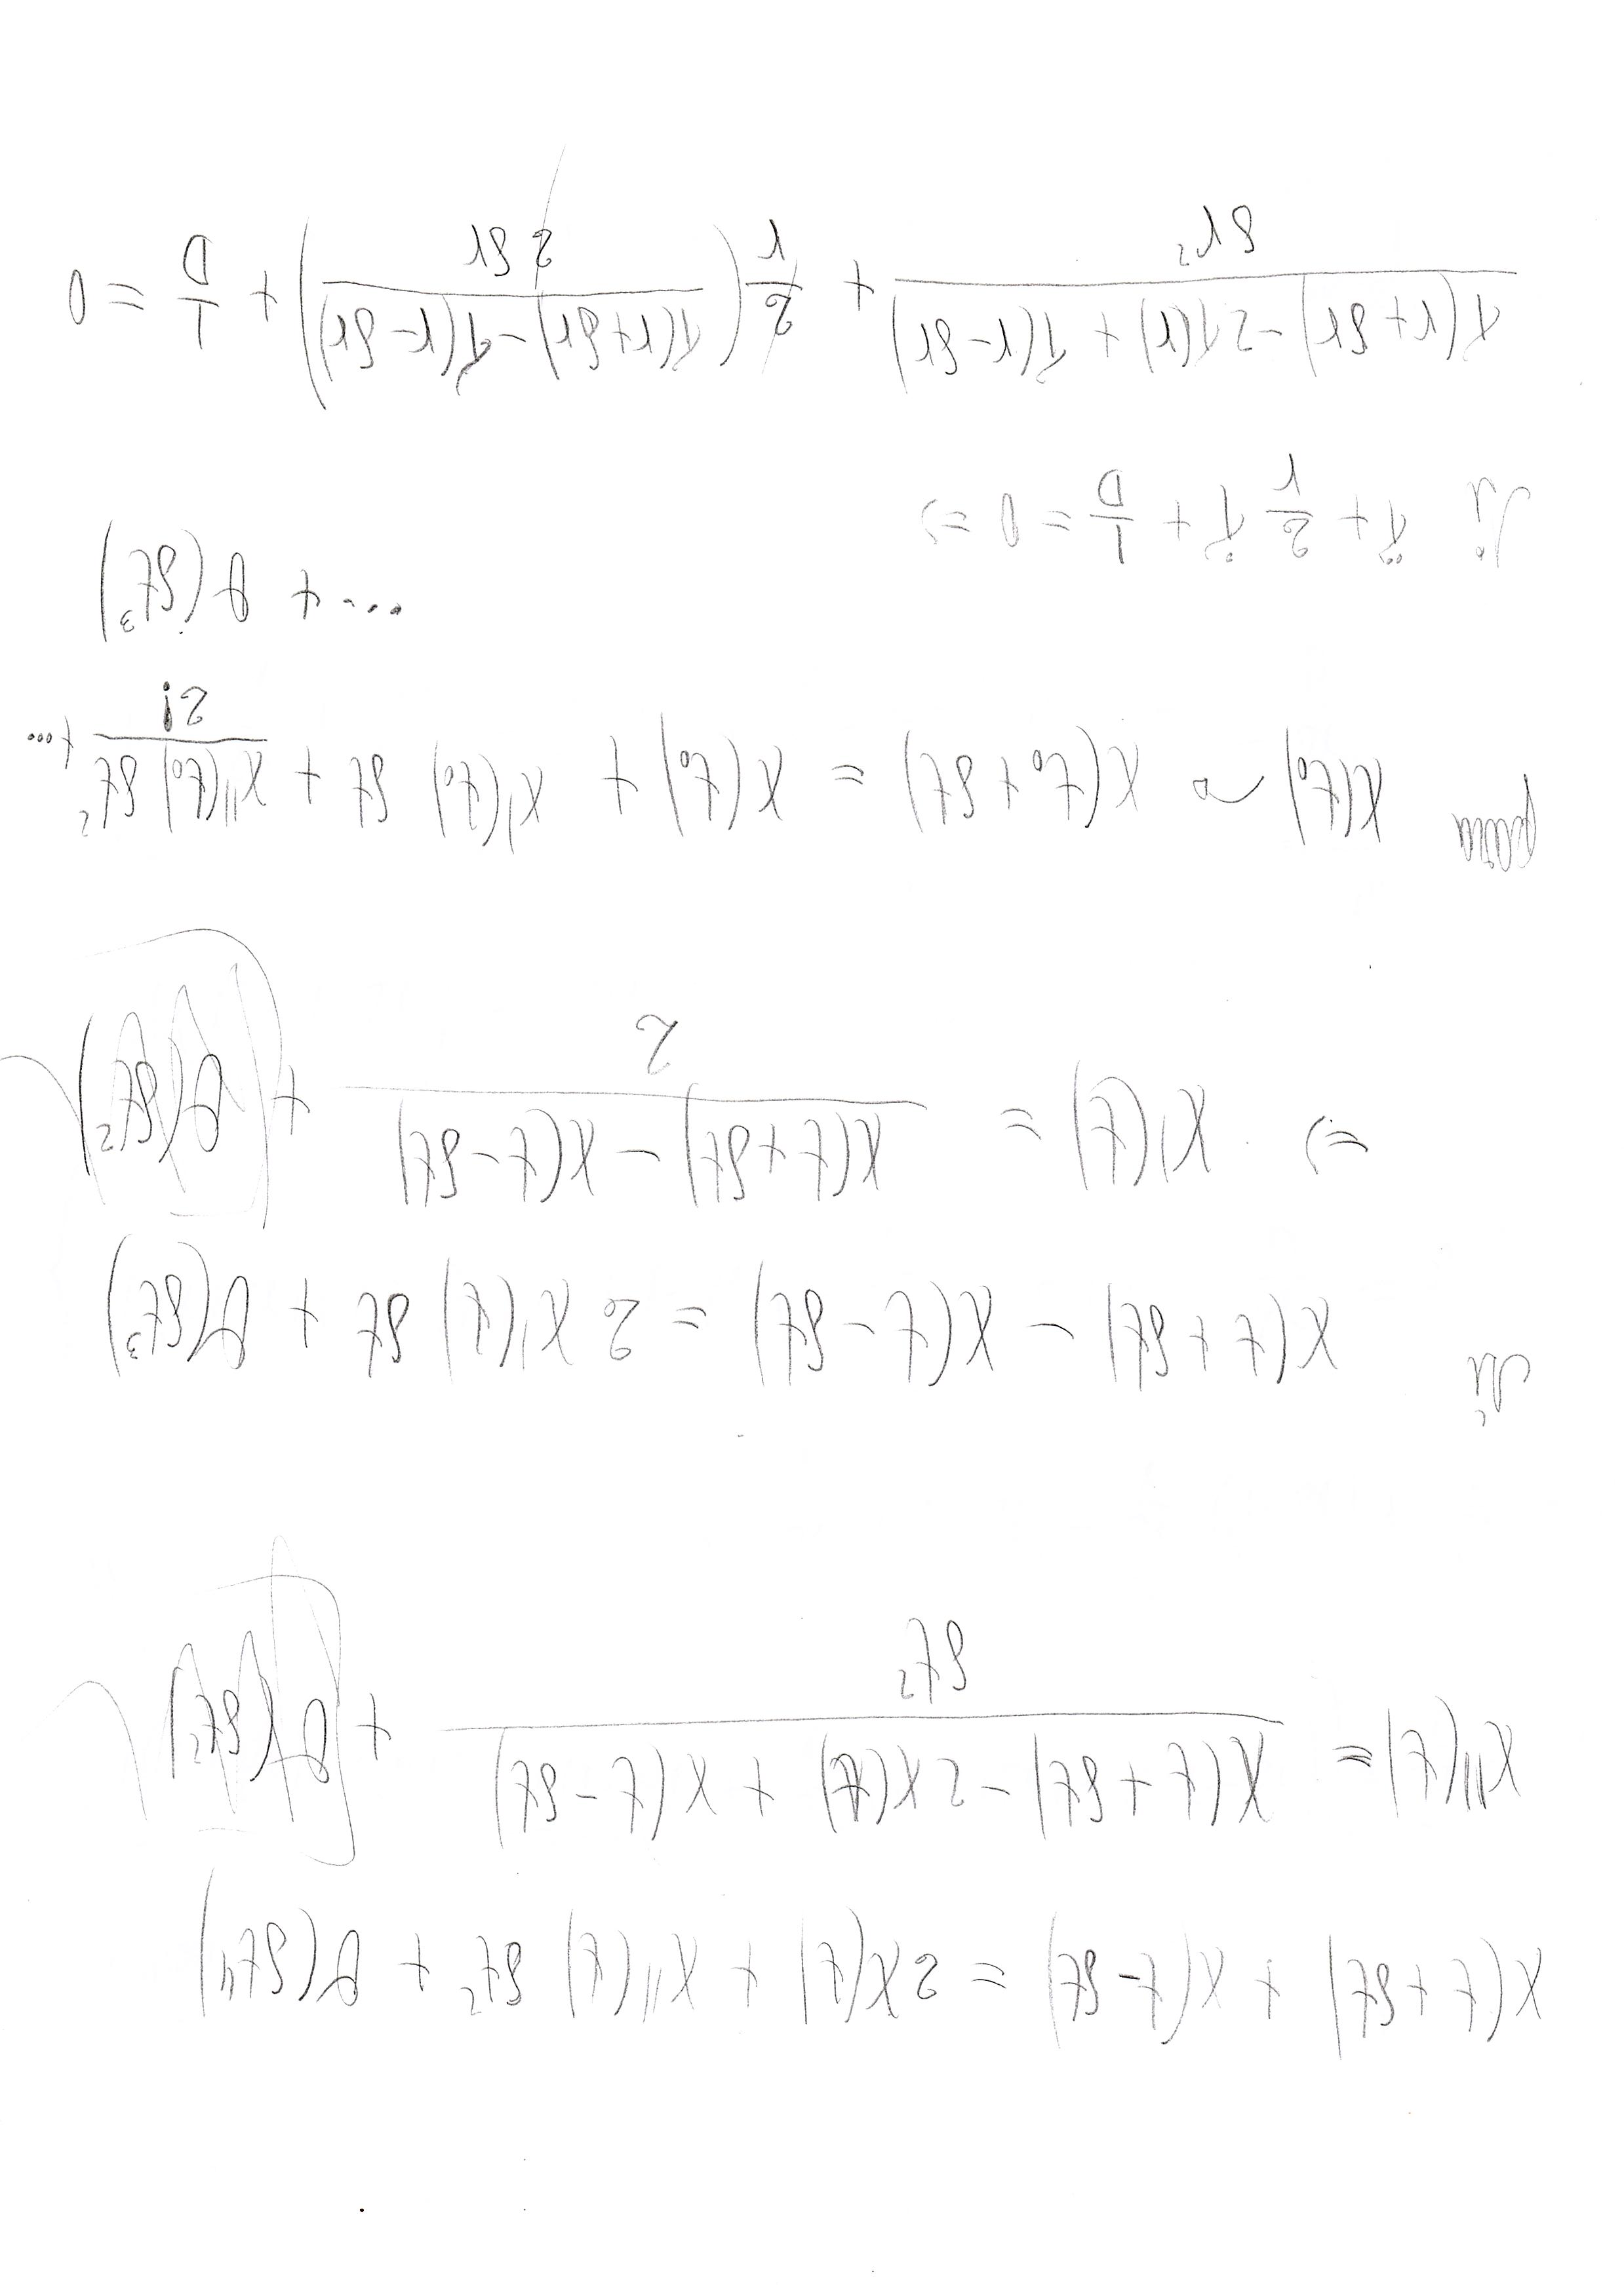 x(t+δt) + x(t-δt) = 2x(t) + x''(t) δt² + O(δt⁴)
x'''(t) = \frac{x(t+δt) - 2x(t) + x(t-δt)}{δt²} + O(δt²)
si x(t+δt) - x(t-δt) = 2x'(t) δt + O(δt³)
=> x'(t) = \frac{x(t+δt) - x(t-δt)}{2} + O(δt²)
para x(t₀) ⇝ x(t₀+δt) = x(t₀) + x'(t₀) δt + \frac{x''(t₀) δt²}{2!} + ...
... + O(δt³)
si τ̈ + \frac{2}{r} τ̇ + \frac{1}{D} = 0 =>
\frac{τ(r+δr) - 2τ(r) + τ(r-δr)}{δr²} + \frac{2}{r} ( \frac{τ(r+δr) - τ(r-δr)}{2δr} ) + \frac{1}{D} = 0